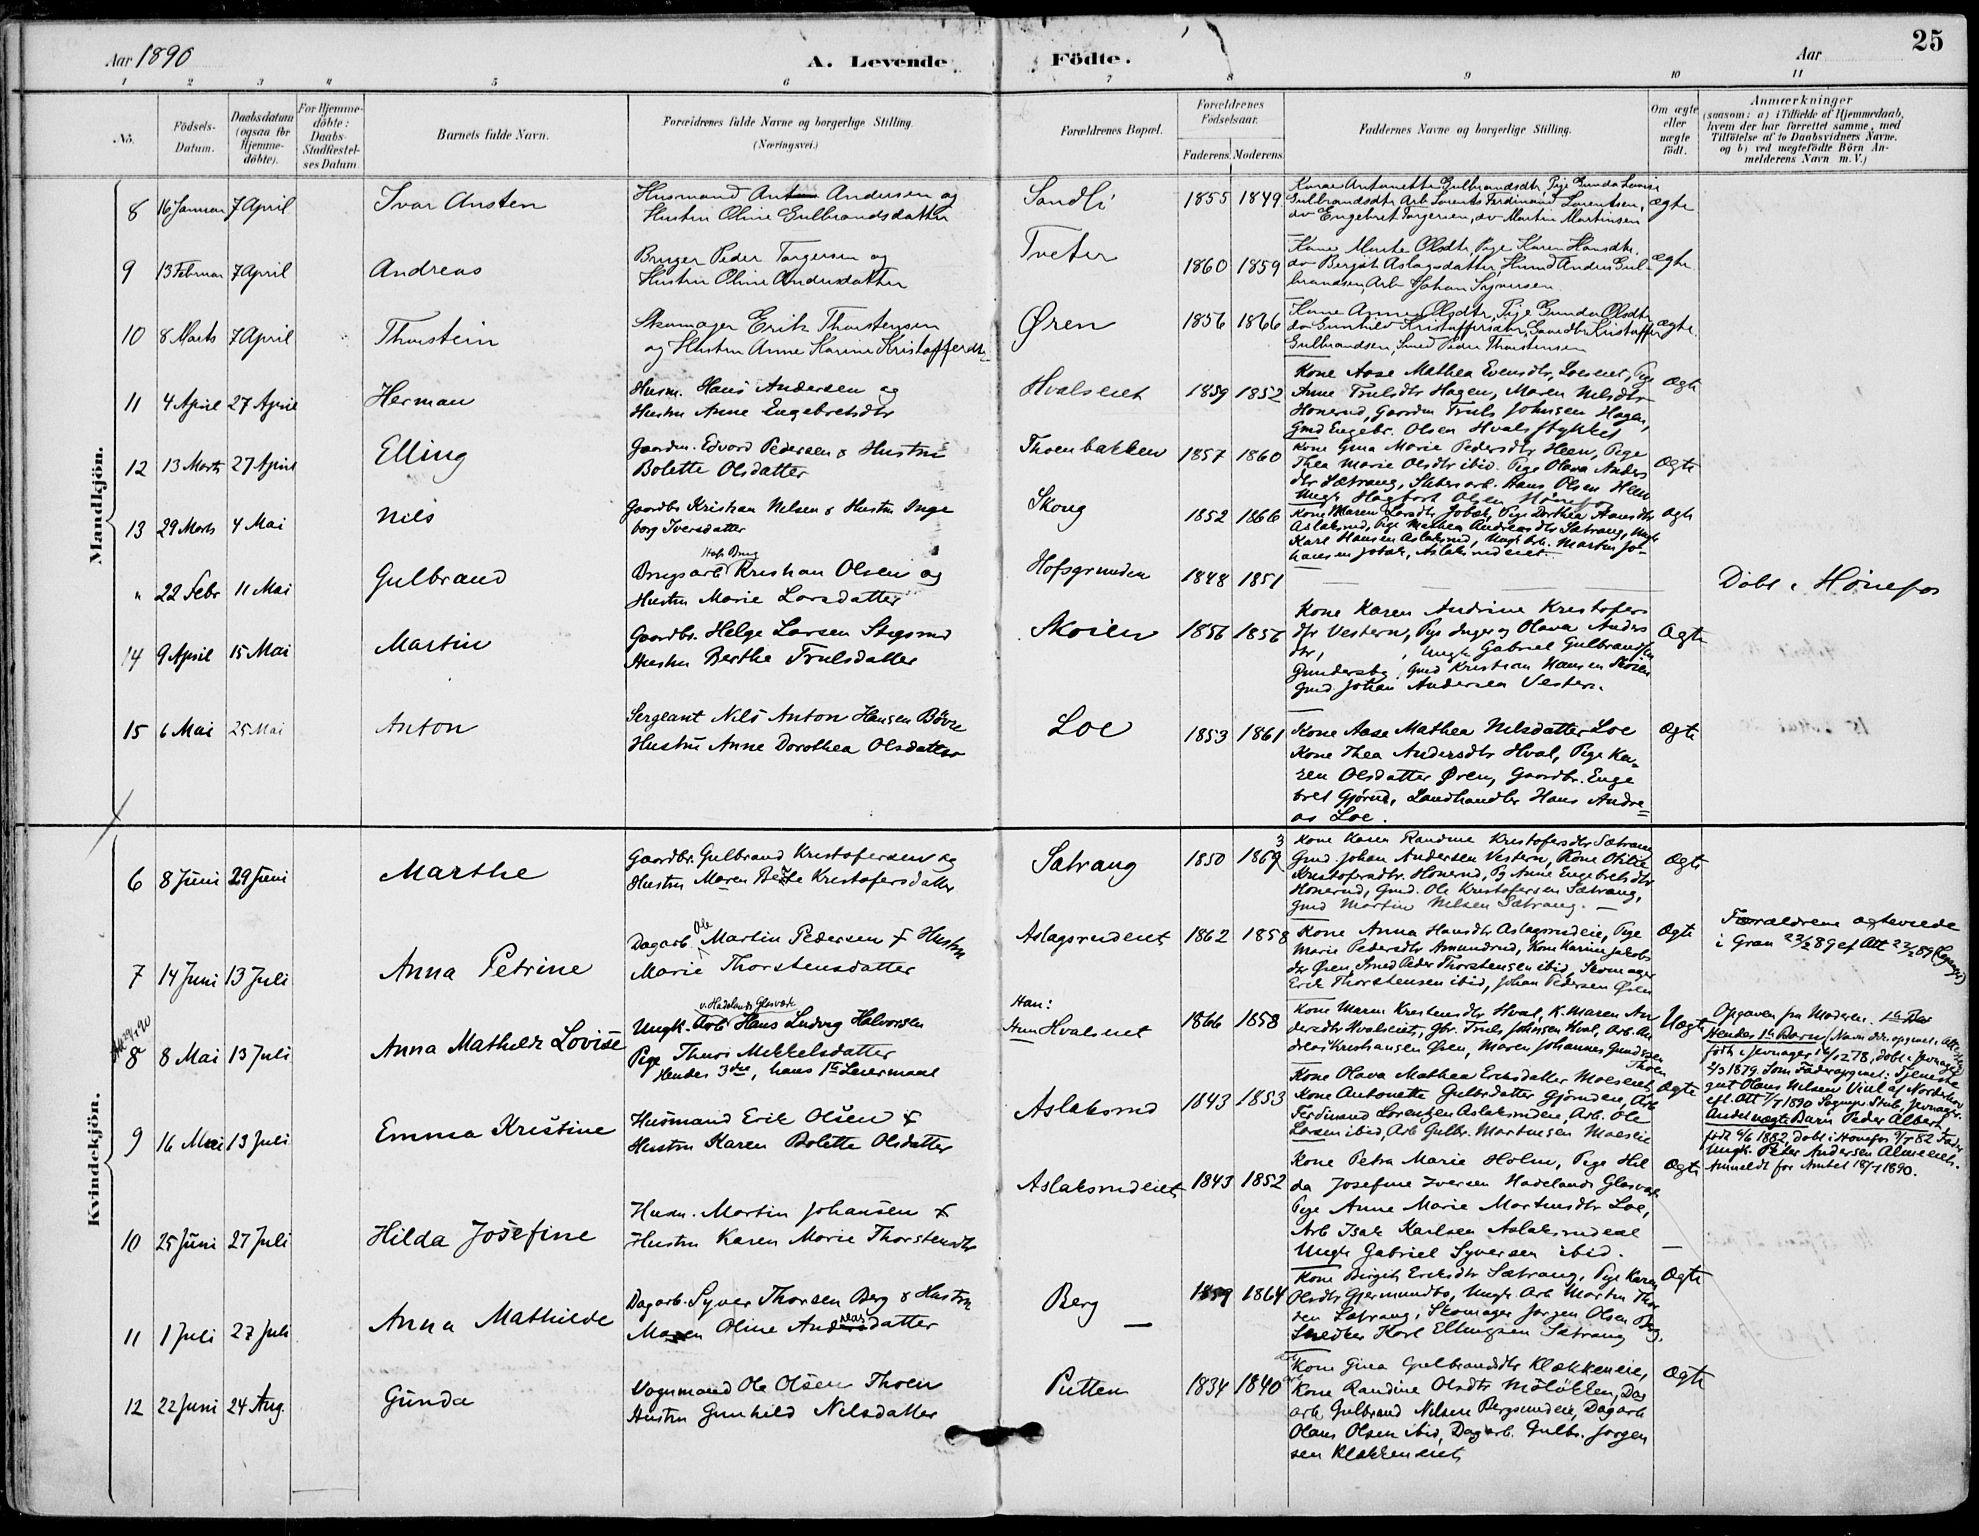 Aar 1890
A. Levende
Födte.
Aar
25
1 2 3 4 5 6 7 8 9 10 11
No.
Födsels-Datum.
Daabsdatum (ogsaa for Hjemme-döbte).
For Hjemme-döbte: Daabs-Stadfæstel-ses Datum.
Barnets fulde Navn.
Forældrenes fulde Navne og borgerlige Stilling.
(Næringsvei.)
Forældrenes Bopæl.
Forældrenes Födselsaar.
Faderens. Moderens.
Faddernes Navne og borgerlige Stilling.
Om ægte eller uægte født.
Anmærkninger
(saasom: a) i Tilfælde af Hjemmedaab,
hvem der har forrettet samme, med
Tilföielse af to Daabsvidners Navne.
og b) ved uægtefödte Börn An-
melderens Navn m. V.)
Mandkjön.
8 16 Januar 7 April Ivar Ansten
Husmand Anton Andersen og
Hustru Oline Gulbrandsdatter
Sandli 1855 1849
Kone Antonette Gulbrandsdtr, Pige Gunda Lovise
Gulbrandsdtr, Arb. Lorents Ferdinand Lorentsen,
do Engebret Torgersen, do Martin Martinsen
ægte
9 13 Februar 7 April Andreas
Bruger Peder Torgersen og
Hustru Oline Andersdatter
Tveter 1860 1859
Kone Marte Olsdtr, Pige Karen Hansdtr,
do Bergit Aslagsdatter, Husmd Anders Gul-
brandsen, Arb Johan Syversen
ægte
10 8 Marts 7 April Thorstein
Skomager Erik Thorstensen
og Hustru Anne Karine Kristoffersdtr
Øren 1856 1866
Kone Anne Olsdtr, Pige Gunda Olsdtr
do Gunhild Kristoffersdtr, Gaardbr Kristoffer
Gulbrandsen, Smed Peder Thorstensen
ægte
11 4 April 27 April Herman
Husm. Hans Andersen og
Hustru Anne Engebretsdtr
Hvalseiet 1859 1852
Kone Aase Mathea Evensdtr, Loeseiet, Pige
Anne Trulsdtr Hagen, Maren Nelsdtr
Honerud, Gaardm Truls Johnsen Hagen,
Gmd Engebr. Olsen Hvalsstykket
ægte
12 13 Marts 27 April Elling
Gaardm. Edvard Pedersen & Hustru
Bolette Olsdatter
Thoenbakken 1857 1860
Kone Gina Marie Pedersdtr Heen, Pige
Thea Marie Olsdtr ibid. Pige Olava Anders
dtr Sætrang, Sliberarb. Hans Olsen Heen
Ungk Hagbart Olsen Hønefos
Ægte
13 29 Marts 4 Mai Nils
Gaardbr Kristian Nelsen & Hustru Inge
borg Iversdatter
Skoug 1852 1866
Kone Maren Larsdtr Jobak, Pige Dorthea Hansdtr
Aslaksrud, Pige Mathea Andreasdtr Sætrang, Ungk
Karl Hansen Aslaksrud, Ungk Arb. Martin Jo-
hansen Jobak, Aslaksrudeiet
ægte
" 22 Febr 11 Mai Gulbrand
Hofs Brug
Brugsarb Kristian Olsen og
Hustru Marie Larsdatter
Hofsgrunden 1848 1851
Döbt i Hønefos
14 9 April 15 Mai Martin
Gaardbr. Helge Larsen Stigsrud
Hustru Berthe Trulsdatter
Skoien 1856 1856
Kone Karen Andrine Kristofers
dtr Vestern, Pige Inger og Olava Anders
dtr, , Ungk Gabriel Gulbrandsen
Gundersby, Gmd Kristian Hansen Skoien
Gmd Johan Andersen Vestern.
Ægte
15 6 Mai 25 Mai Anton
Sergeant Nils Anton Hansen Bövre
Hustru Anne Dorothea Olsdatter
Loe 1853 1861
Kone Aase Mathea Nelsdatter Loe
Kone Thea Andersdtr Hval, Pige Ka-
ren Olsdatter Øren, Gaardbr. Enge
bret Gjörud, Landhandler Hans Andre=
as Loe.
Ægte
Kvindekjön.
6 8 Juni 29 Juni Marthe
Gaardbr. Gulbrand Kristofersen og
Hustru Maren Beate Kristofersdatter
Sætrang 1850 1869 3
Kone Karen Randine Kristofersdtr Sætrang
Gmd. Johan Andersen Vestern, Kone Otilie
Kristofersdtr. Honerud, Pg Anne Engebretsdtr
Honerud, Gmd. Ole Kristofersen Sætrang,
Gmd Martin Nelsen Sætrang.
Ægte
7 14 Juni 13 Juli Anna Petrine
Dagarb. Ole Martin Pedersen & Hustru
Marie Thorstensdatter
Aslagsrudeiet 1862 1858
Kone Anna Hansdtr Aslagsrudeie, Pige
Marie Pedersdtr Amundrud, Kone Karine Jakobs
dtr Øren, Smed Peder Thorstensen ibid, Skomager
Erik Thorstensen ibid, Johan Pedersen Øren
Ægte
Forældrene ægteviede
i Gran 22/2 89 ef. Att 22/2 89
8 8 Mai 13 Juli Anna Mathilde Lovise
v. Hadelands Glasværk
Ungk. Arb Hans Ludvig Halvorsen
Pige Thuri Mikkelsdatter
Hendes 3die, hans 1te Leiermaal
Han:
Hun Hvalseiet 1866 1858
Kone Maren Kristensdtr Hval, K. Maren An
dersdtr Hvalseiet, Gbr. Truls Johnsen Hval, Arb. An
dreas Kristiansen Øren, Maren Johannes Gundersen
Thoen
Uægte
Opgaven fra Moderen.
Hendes 1te Barn (Navn ikke opgivet i Attesten)
født i Jevnager 14/12 78, døbt i Jevnager
2/3 1879. Som Fader opgivet: Tjeneste
gut Olaus Nilsen Viul af Norderhov
efl. Att 7/7 1890 Sognepr. Stub, Jevnager.
Andet uægte Barn Peder Albert
født 4/6 1882, Døbt i Hønefos 9/7 82 Fader
Ungk. Peter Andersen Almeneiet.
Anmeldt for Amtet 18/7 1890.
9 16 Mai 13 Juli Emma Kristine
Husmand Erik Olsen &
Hustru Karen Bolette Olsdatter
Aslaksrud 1843 1853
Kone Olava Mathea Eriksdatter Moeseiet,
Kone Antonette Gulbrsdatter Gjörudeie, Arb
Ferdinand Lorentzen Aslaksrudeie, Arb. Ole
Larsen ibid, Arb Gulbr. Martinsen Moeseie
Ægte
10 25 Juni 27 Juli Hilda Josefine
Husm. Martin Johansen &
Hustru Karen Marie Thorstensdtr
Aslaksrudeiet 1843 1852
Kone Petra Marie Holm, Pige Hil
da Josefine Iversen Hadelands Glasværk
Pige Anne Marie Martinsdtr Loe,
Arb Isak Karlsen Aslaksrudeie
Ungk Gabriel Syversen ibid.
Ægte
11 1 Juli 27 Juli Anna Mathilde
Dagarb. Syver Thorsen Berg & Hustru
Maren Oline Andreasdatter
Berg 1859 1864
Kone Birgit Eriksdtr Sætrang, Pige Karen
Olsdtr Gjermundbo, Ungk Arb Martin Thor
sen Sætrang, Skomager Jørgen Olsen Berg,
Snedker Karl Ellingsen Sætrang
Ægte
12 22 Juni 24 Aug. Gunda
Vognmand Ole Olsen Thoen
Hustru Gunhild Nilsdatter
Putten 1834 1840
Kone Gina Gulbrandsdtr Klækkeneie,
Kone Randine Olsdtr Möløkken, Dag
arb Gulbrand Nilsen Bergsundeie, Dagarb
Olaus Olsen ibid, Dagarb. Gulbr. Jørgen
sen Klækkeneiet
Ægte